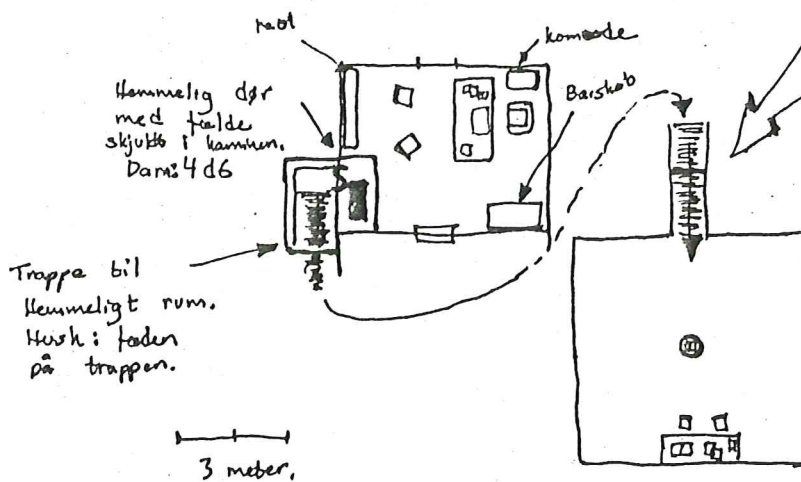 reol
kommode
Hemmelig dør
med fælde
skjult i kaminen.
Dam: 4d6
Barskab
Trappe til
Hemmeligt rum.
Husk: fælden
på trappen.
3 meter.